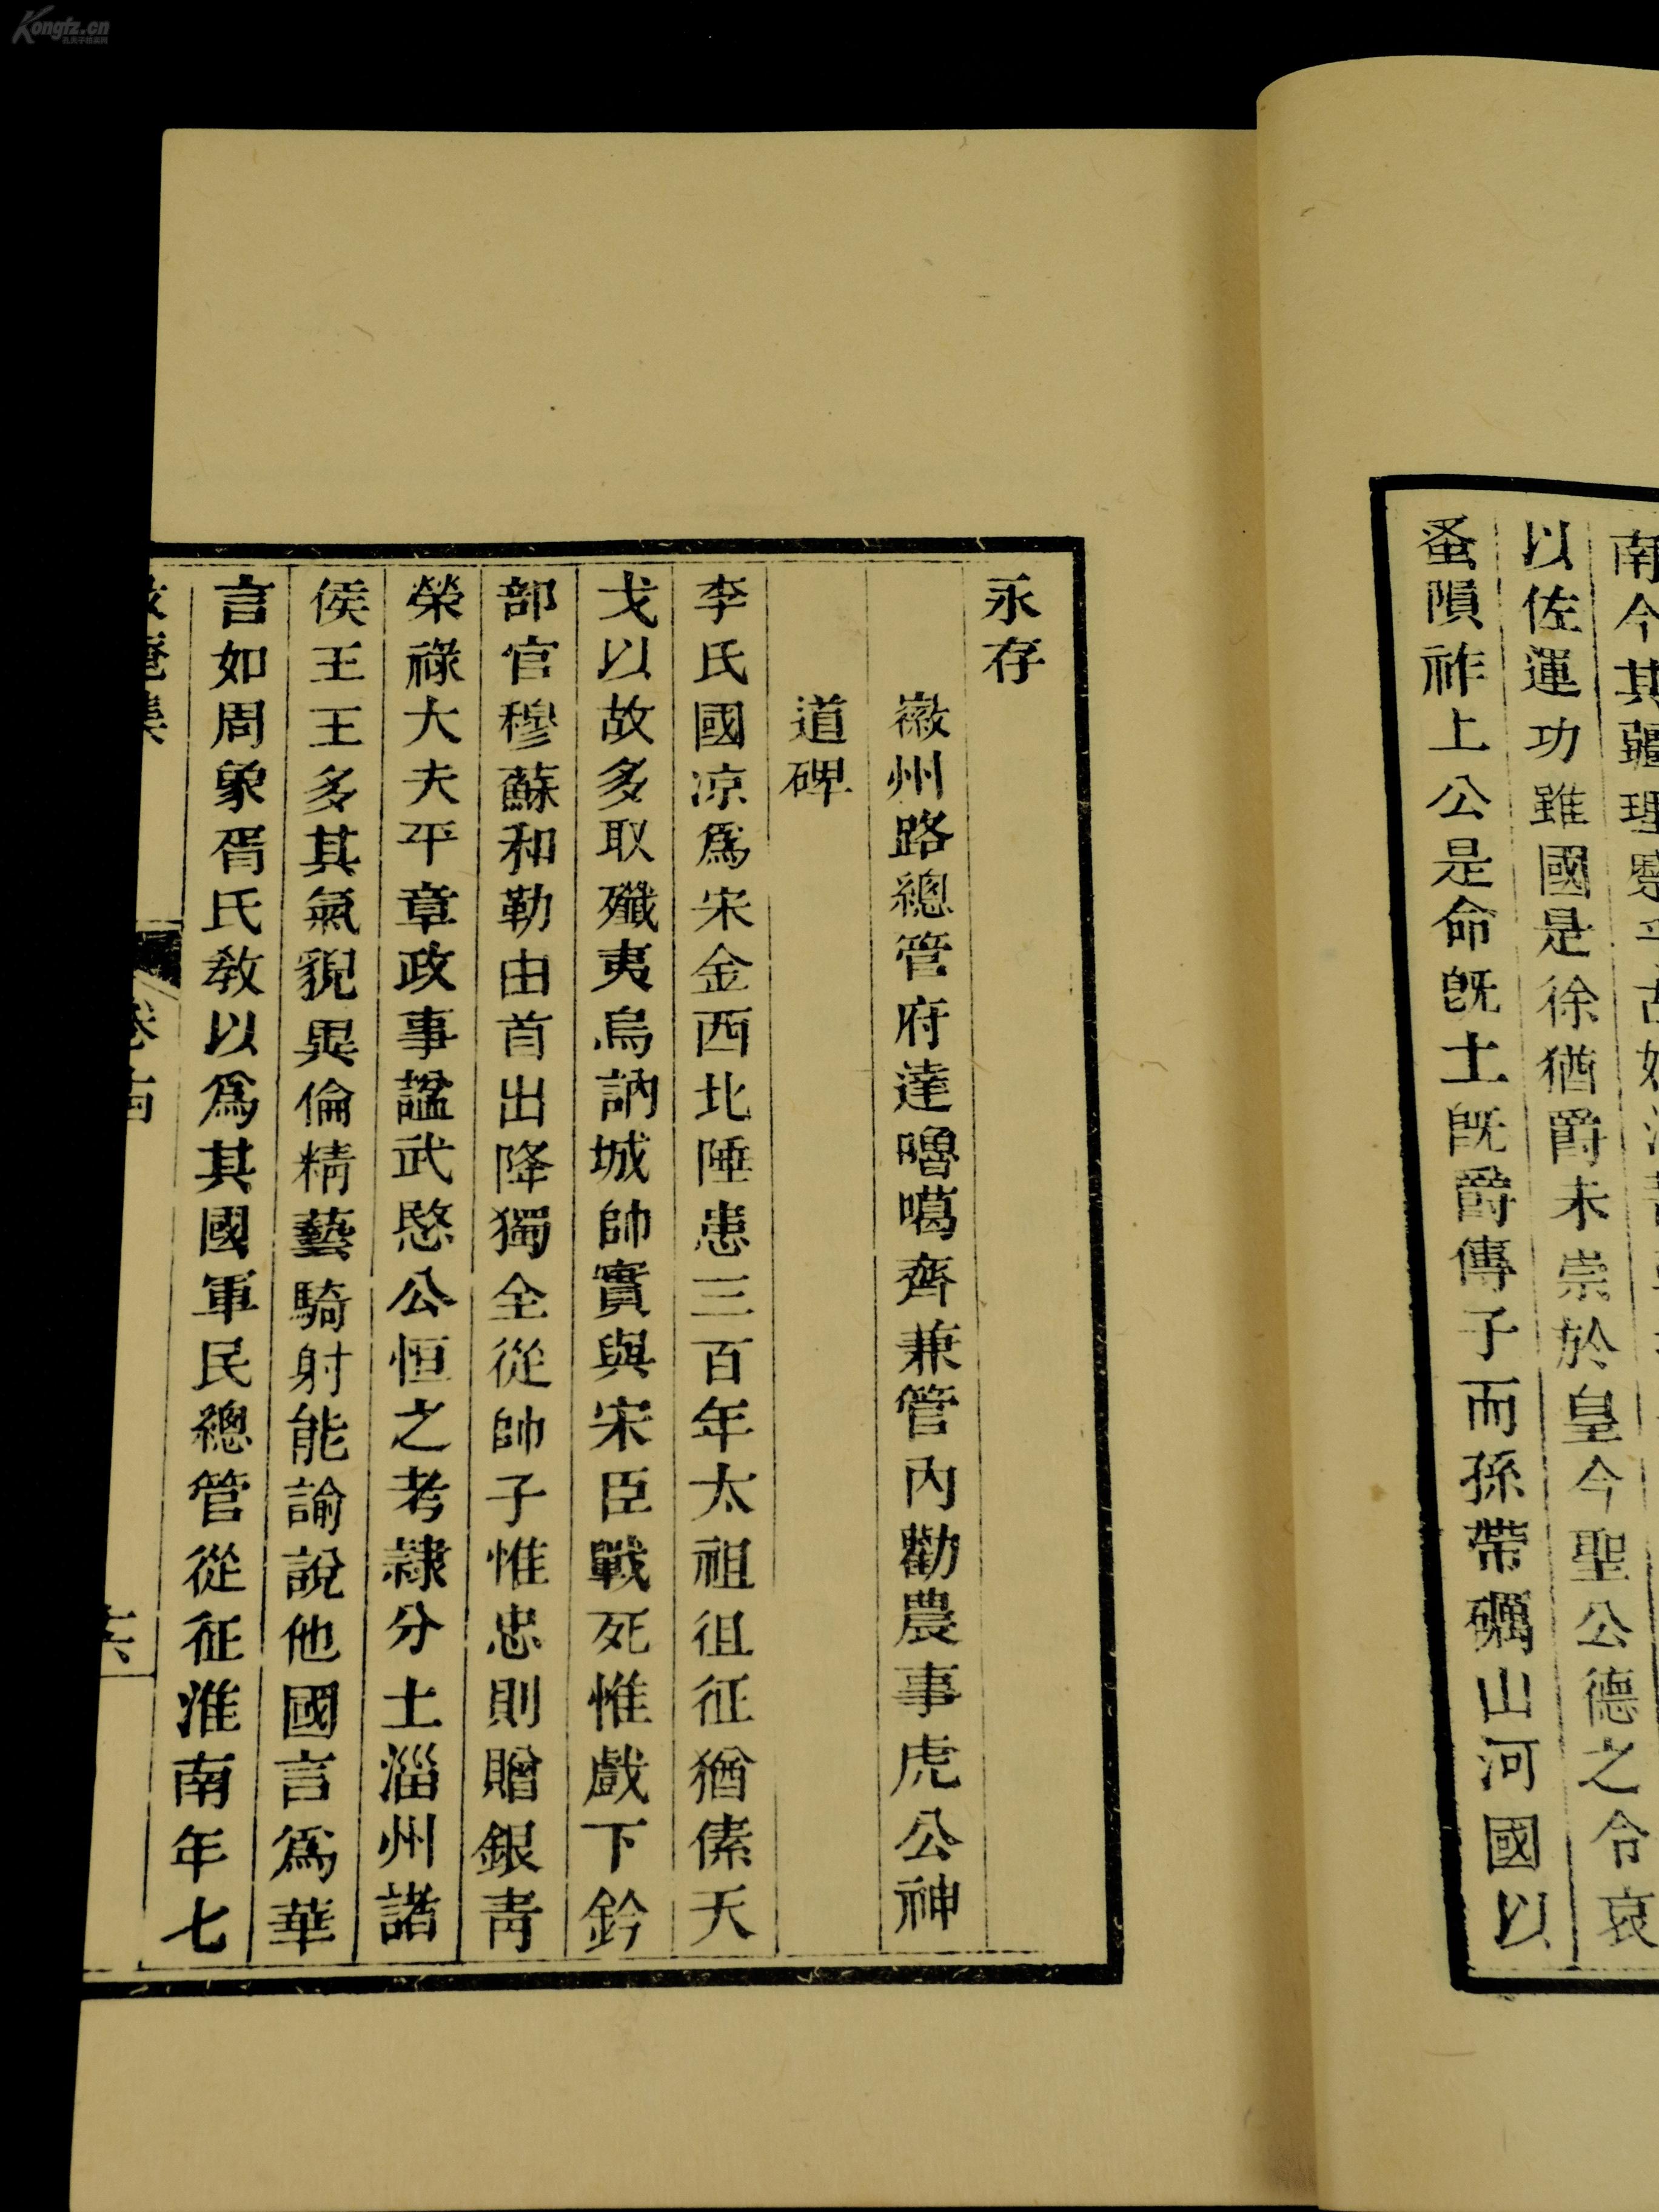 Kongfz.cn
以佐運功雖國是徐猶爵未崇於皇今聖公德之令哀
蚤隕祚上公是命旣土旣爵傳子而孫帶礪山河國以
永存
徽州路總管府達嚕噶齊兼管內勸農事虎公神
道碑
李氏國凉爲宋金西北陲患三百年太祖徂征猶傃天
戈以故多取殲夷烏訥城帥實與宋臣戰死惟戲下鈐
部官穆蘇和勒由首出降獨全從帥子惟忠則贈銀青
榮祿大夫平章政事諡武愍公恒之考隷分土淄州諸
侯王王多其氣貌異倫精藝騎射能諭說他國言爲華
言如周象胥氏教以爲其國軍民總管從征淮南年七